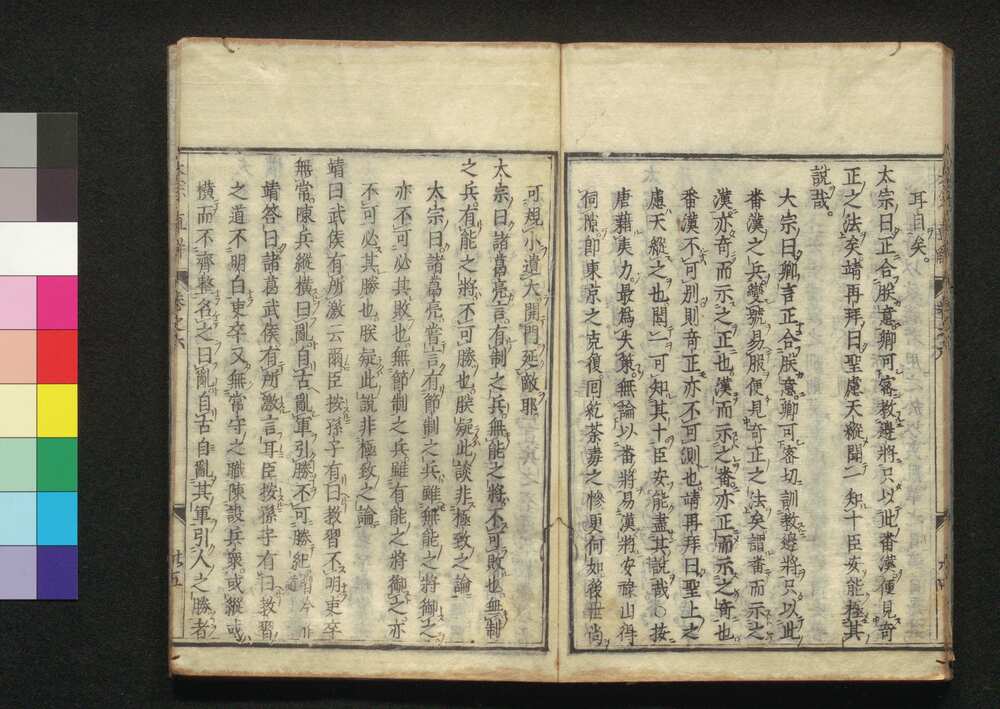 耳自矣。
太宗曰正合朕意卿可密教邊將只以此番漢便見奇
正之法矣靖再拜曰聖慮天縱聞一知十臣安能極其
說哉。
太宗曰卿言正合朕意卿可密切訓教邊將只以此
番漢之兵變號易服便見奇正之法矣謂番而示之
漢亦奇而示之正也漢而示之番亦正而示之奇也
番漢不可別則奇正亦不可測也靖再拜曰聖上之
慮天縱之也聞一可知其十臣安能盡其說哉○按
唐藉夷力最為失策無論以番將易漢將安祿山得
伺隙即東京之克復回紇荼毒之慘更何如後世尚
可規小遺大開門延敵耶
太宗曰諸葛亮言有制之兵無能之將不可敗也無制
之兵有能之將不可勝也朕疑此談非極致之論
太宗曰諸葛亮嘗言有節制之兵雖無能之將御之
亦不可必其敗也無節制之兵雖有能之將御之亦
不可必其勝也朕疑此說非極致之論
靖曰武侯有所激云爾臣按孫子有曰教習不明吏卒
無常陳兵縱橫曰亂自古亂軍引勝不可勝紀
靖答曰諸葛武侯有所激言耳臣按孫子有曰教習
之道不明白吏卒又無常守之職陳設兵衆或縱或
橫而不齊整名之曰亂自古自亂其軍引人之勝者
卷之六
廿五